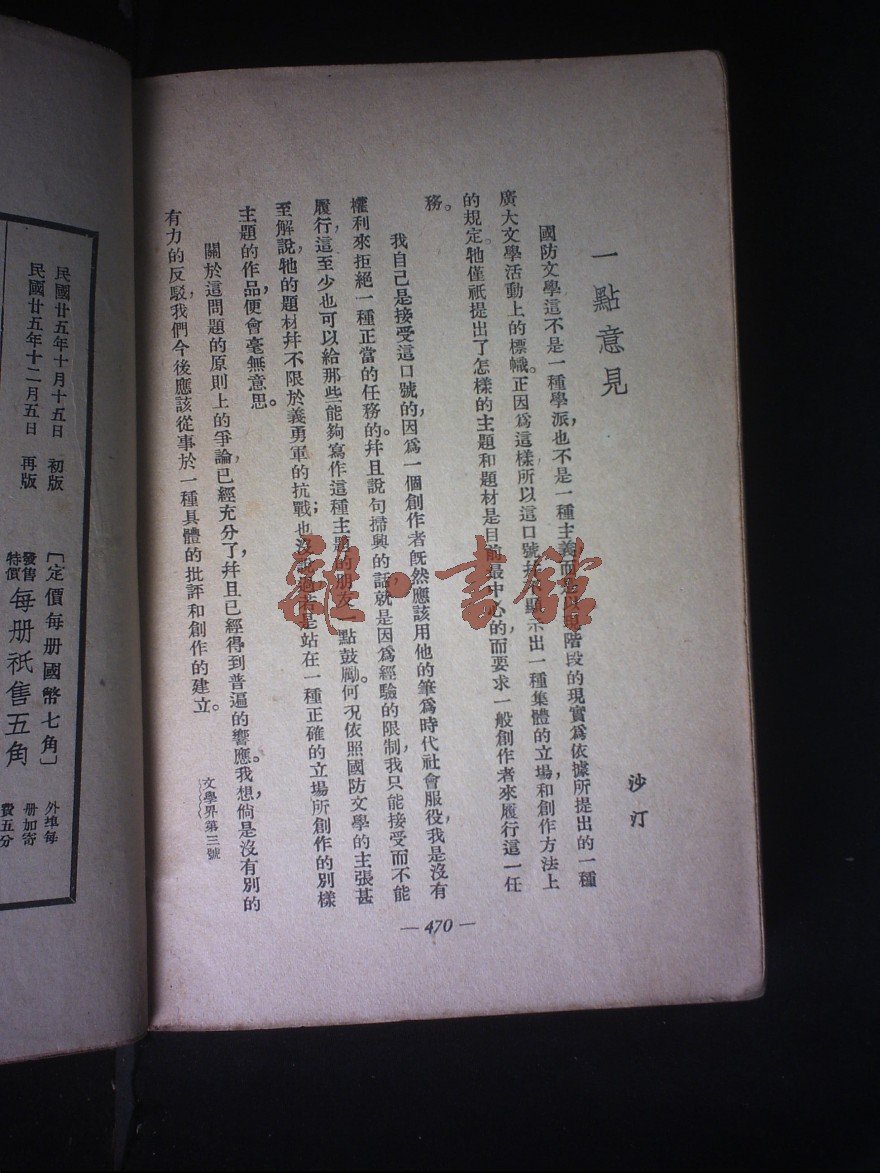 一點意見
沙汀
國防文學這不是一種學派，也不是一種主義而是以現階段的現實爲依據所提出的一種
廣大文學活動上的標幟。正因爲這樣所以這口號幷不顯示出一種集體的立場和創作方法上
的規定。牠僅祇提出了怎樣的主題和題材是目前最中心的，而要求一般創作者來履行這一任
務。
我自己是接受這口號的，因爲一個創作者旣然應該用他的筆爲時代社會服役，我是沒有
權利來拒絕一種正當的任務的。幷且說句掃興的話，就是因爲經驗的限制，我只能接受而不能
履行，這至少也可以給那些能夠寫作這種主題的朋友一點鼓勵。何況依照國防文學的主張甚
至解說，牠的題材幷不限於義勇軍的抗戰；也沒說過若是站在一種正確的立場所創作的別樣
主題的作品，便會毫無意思。
關於這問題的原則上的爭論已經充分了，幷且已經得到普遍的響應。我想，倘是沒有別的
有力的反駁，我們今後應該從事於一種具體的批評和創作的建立。
文學界第三號
— 470 —
民國廿五年十月十五日 初版
民國廿五年十二月五日 再版
〔定價每册國幣七角〕
發售特價 每册祇售五角
外埠每册加寄費五分
雜·書館